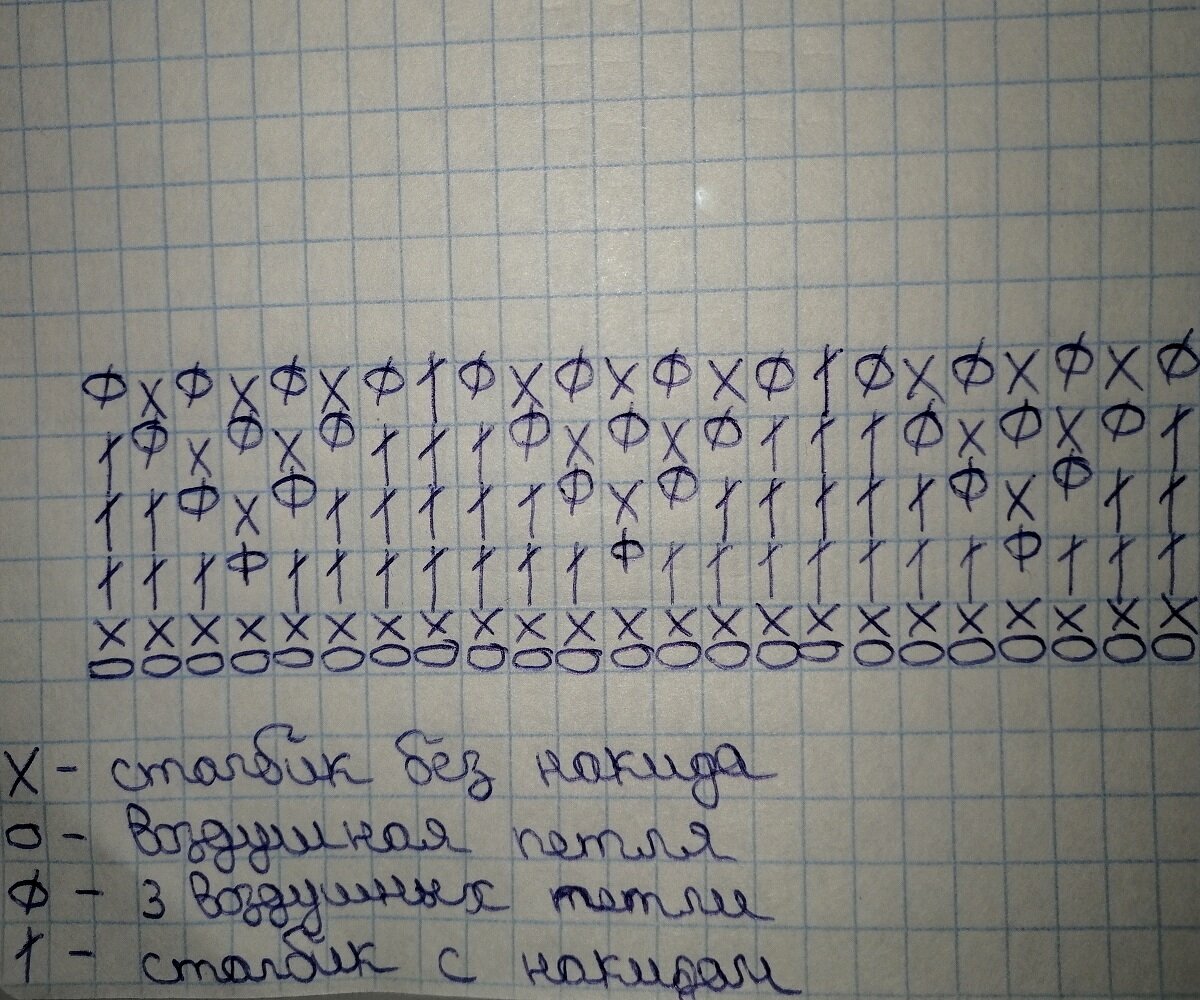 Ф X Ф X Ф X Ф † Ф X Ф X Ф X Ф † Ф X Ф X Ф X Ф
† Ф X Ф X Ф † † † Ф X Ф X Ф † † † Ф X Ф X Ф †
† † Ф X Ф † † † † † Ф X Ф † † † † † Ф X Ф † †
† † † Ф † † † † † † † Ф † † † † † † † Ф † † †
X X X X X X X X X X X X X X X X X X X X X X X
O O O O O O O O O O O O O O O O O O O O O O O
X - столбик без накида
O - воздушная петля
Ф - 3 воздушных петли
† - столбик с накидом